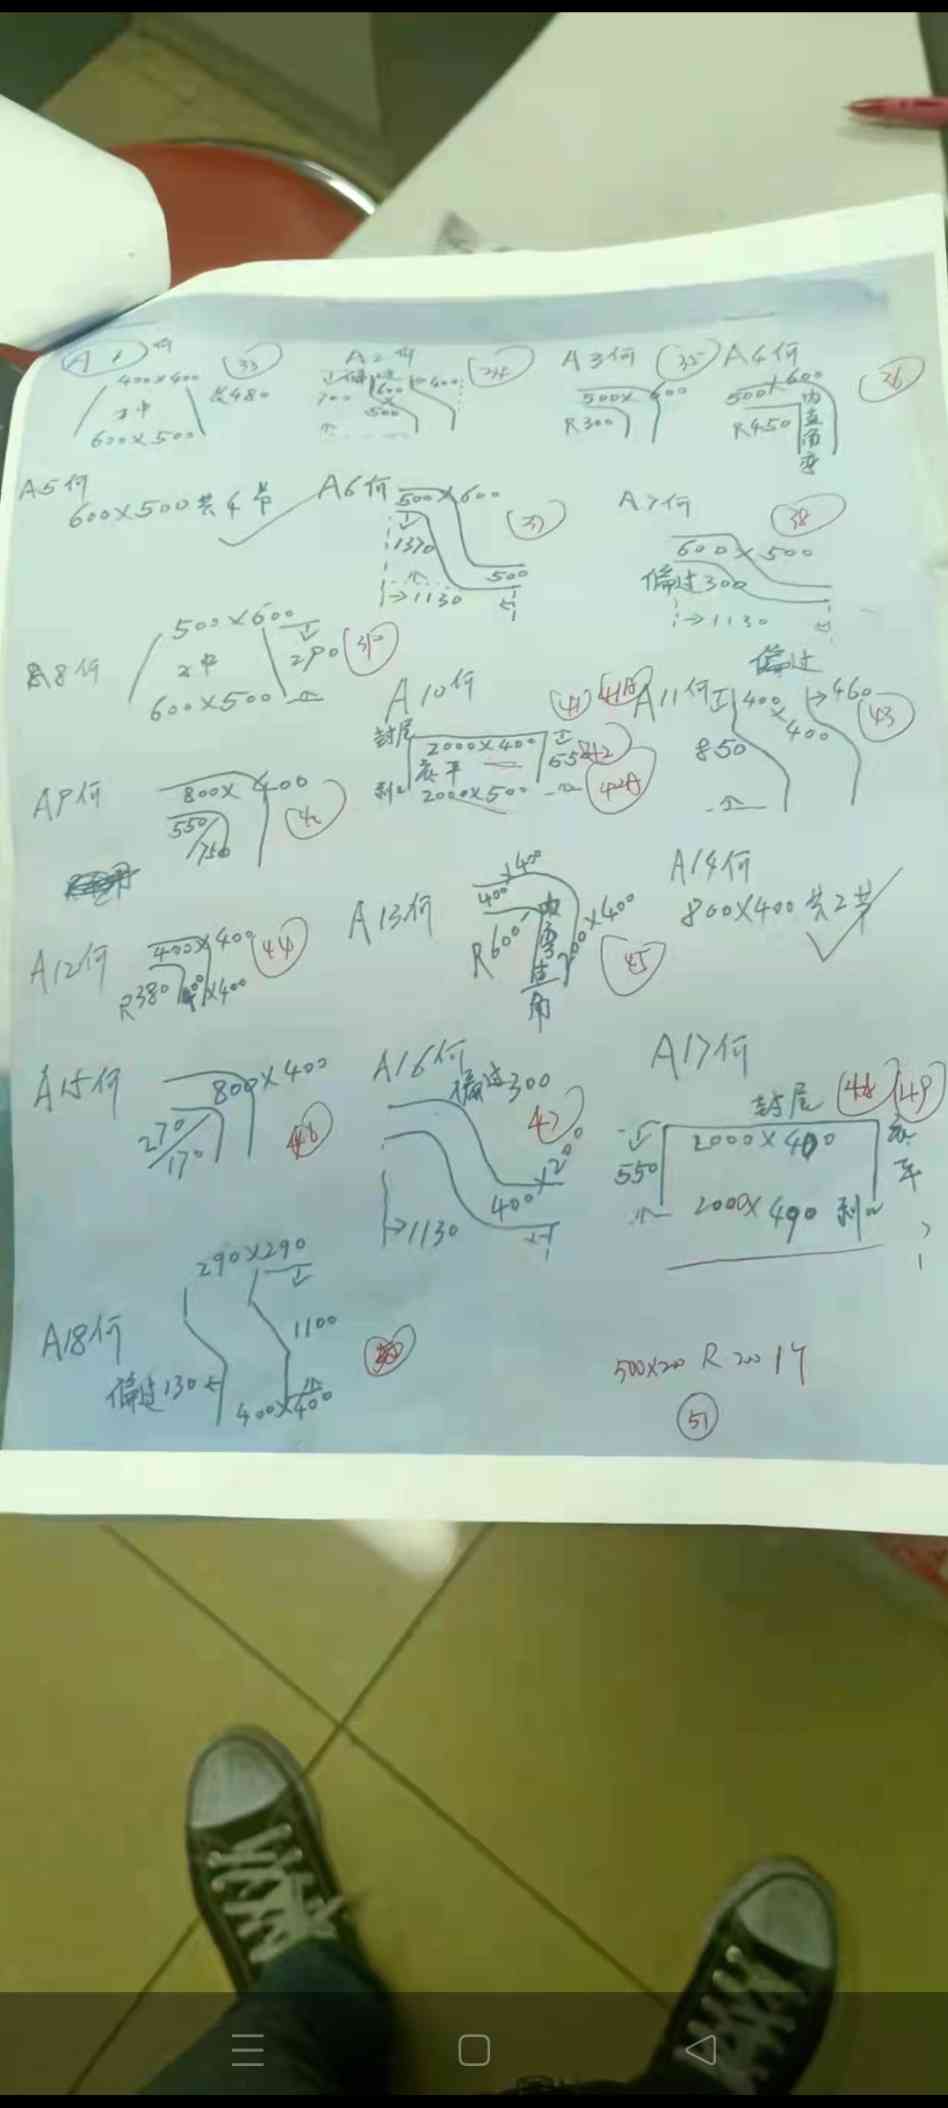 A1何 33
400×400
才中 长480
600×500
A2何 34
偏过 400
700 600
×
500
A3何 35
500×400
R300
A4何 36
500×600
R450
内直角弯
A5何
600×500共4节
A6何 37
500×600
1370
500
1130
A7何 38
600×500
偏过300
1130
A8何
500×600
才中 290 39
600×500
A9何
800×400
550/750
A10何 41 41A
封尾
2000×400
底平 550 42
2000×500 42A
A11何 偏过
400×400 460 43
850
A12何
400×400 44
R380 400×400
A13何
400×400
R600
内弯直角
200×400 45
A14何
800×400共2节
A15何
800×400
270/170 46
A16何
偏过300
47
400×200
1130
A17何
封尾 48 49
2000×400 底平
550
2000×490
A18何
290×290
1100
偏过130
400×400
500×200 R200 1个
51